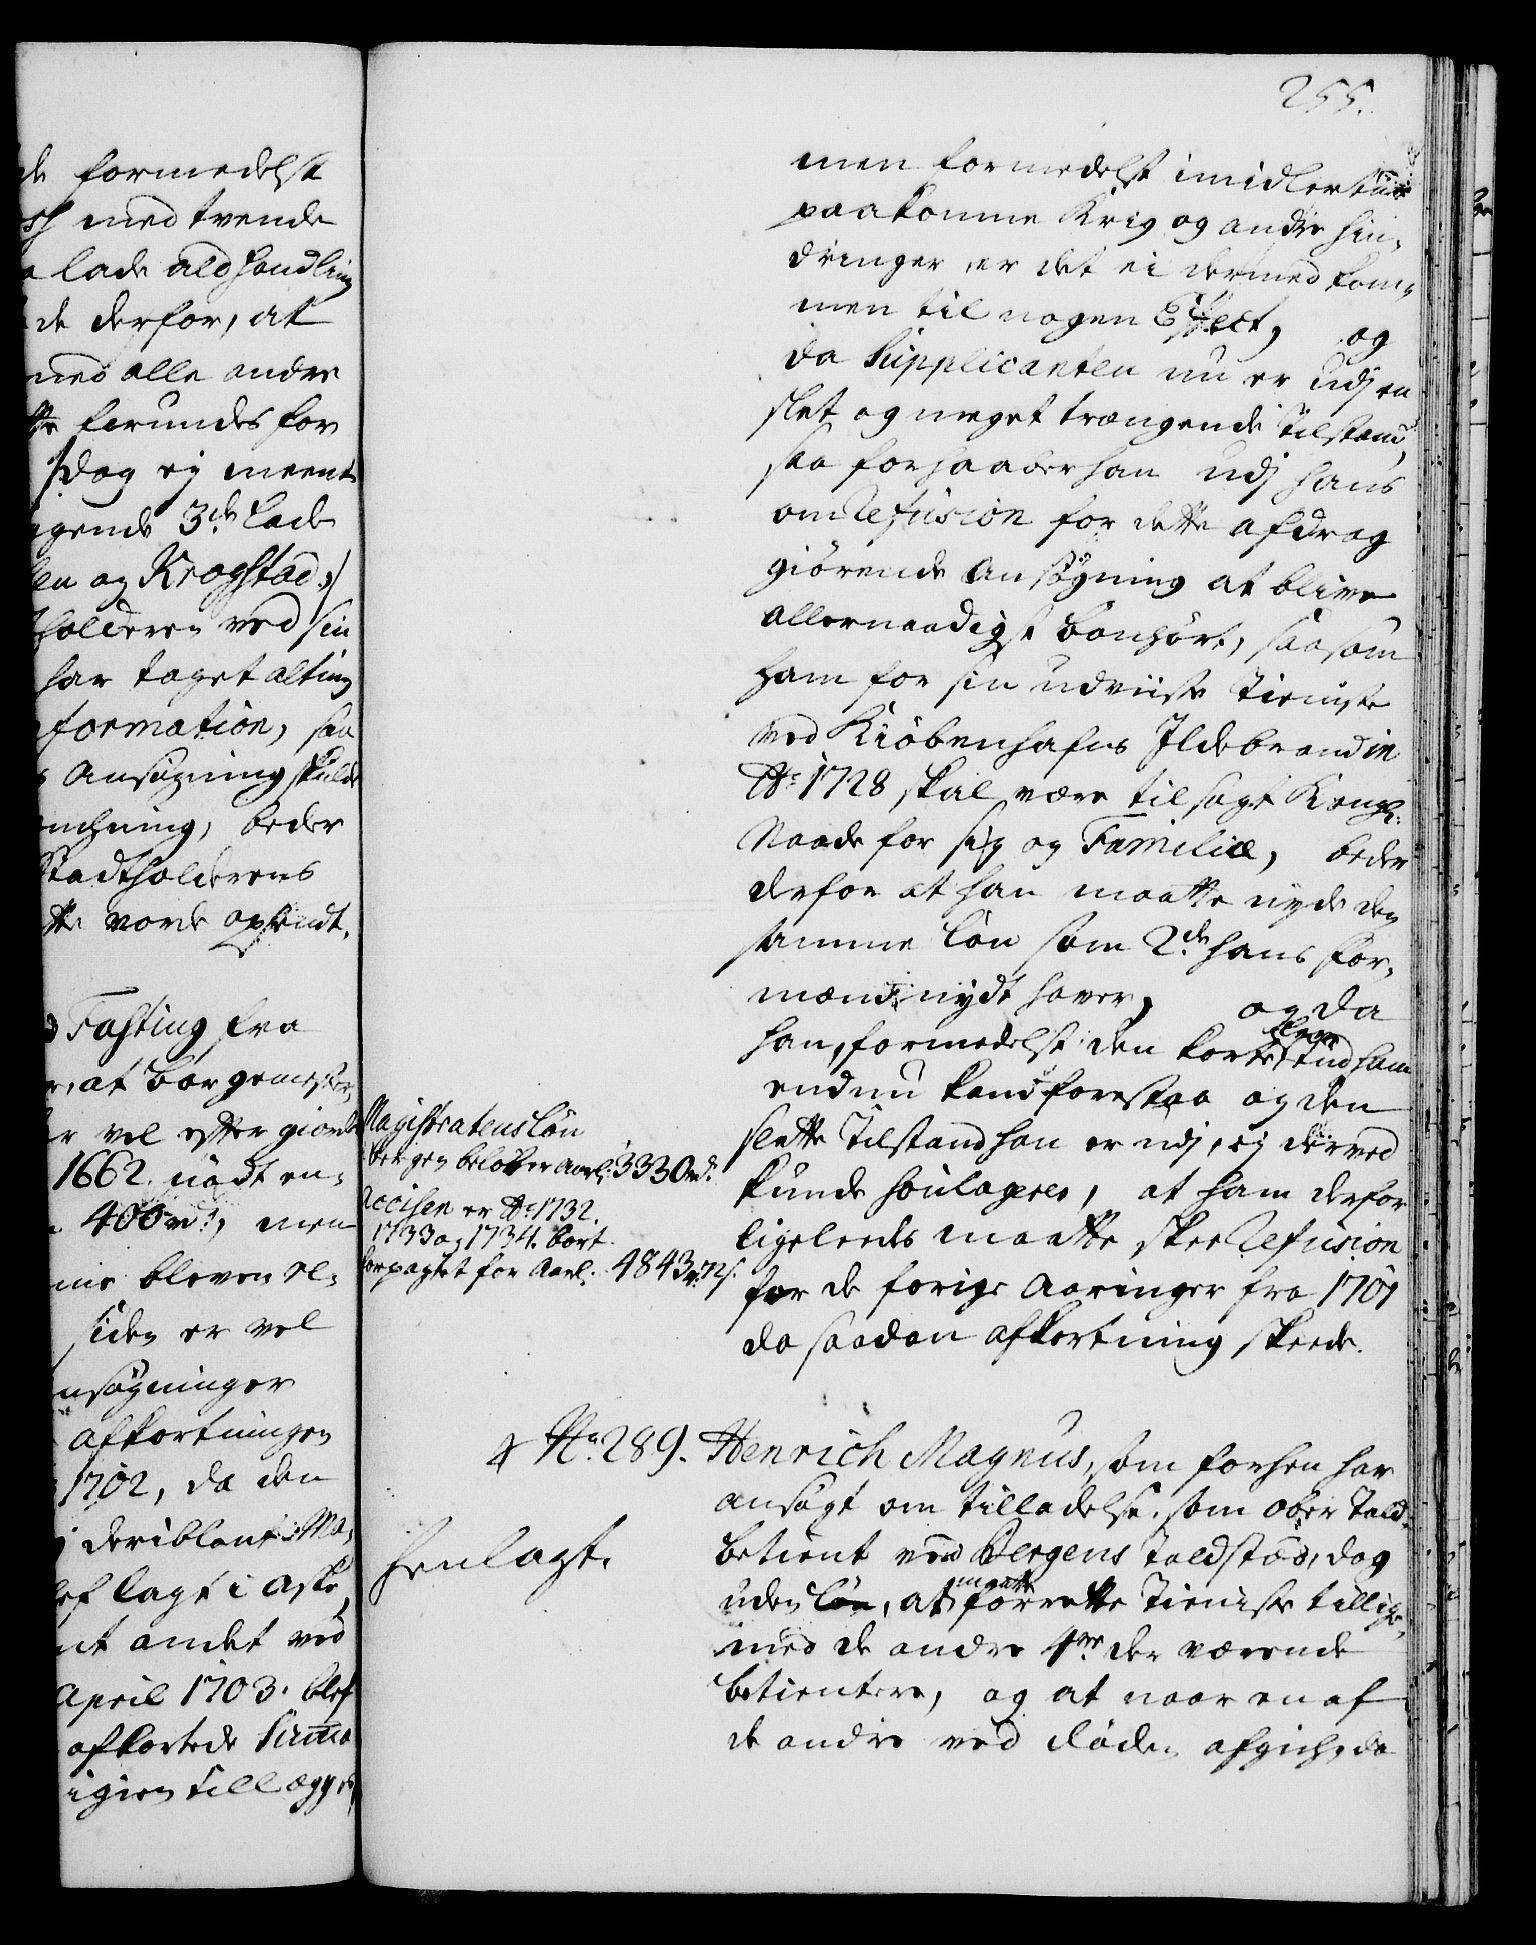 255.
de formedelst
med tvende
lade ald handling
de derfor, at
med alle andre
tte forundes for
dog ej meent
gende 3de lade
len og Krogstad,/
holderen ved sin
har taget alting
formation, saa
Ansøgning skulde
nchning, beder
Stadtholderens
tte vorde opsendt.
Fasting fra
at borgemester
vel efter giorde
1662. nødt en-
400 rd., men
me bleven er-
siden er vel
nsøgninger
afkortningen
1702, da den
deriblant Ma-
ef lagt i aske
nt andet ved
April 1703. blef
afkortede Summa
igien tillægges
men formedelst imidlertiid
paakomne Krig og andre hin-
dringer er det ei dermed kom-
men til nogen Effect, og
da Supplicanten nu er udj en
slet og meget trængende Tilstand,
saa forhaaber han udj hans
om Refusion for dette afdrag
giörende Ansøgning at blive
allernaadigst bønhört, saasom
ham for sin udviiste Tieniste
ved Kiöbenhafns Ildebrand in
Ao 1728 skal være tilsagt Kongl:
Naade for sig og Familie, beder
derfor at han maatte nyde den
samme Lön som 2de hans For-
mænd nydt haver, og da
han, formedelst den korte Tiid ham
endnu kand forestaa og den
slette Tilstand han er udj, ej derved
kunde soulageres, at ham derfor
ligeleedes maatte skee Refusion
for de forige Aaringer fra 1701
da saadan afkortning skeede.
Magistratens Lön
Bergen beløber aarl: 3330 rd.
Accisen er Ao 1732.
1733 og 1734. bort
forpagtet for Aarl. 4843 rd. 72 s.
No. 289. Henrich Magnus, som forhen har
ansögt om tilladelse som ober Told-
betient ved Bergens Toldstæd, dog
uden Lön, at maatte forrette Tieniste tillige-
med de andre 4re der værende
betientere, og at naar en af
de andre ved døden afgich, da
henlagt.